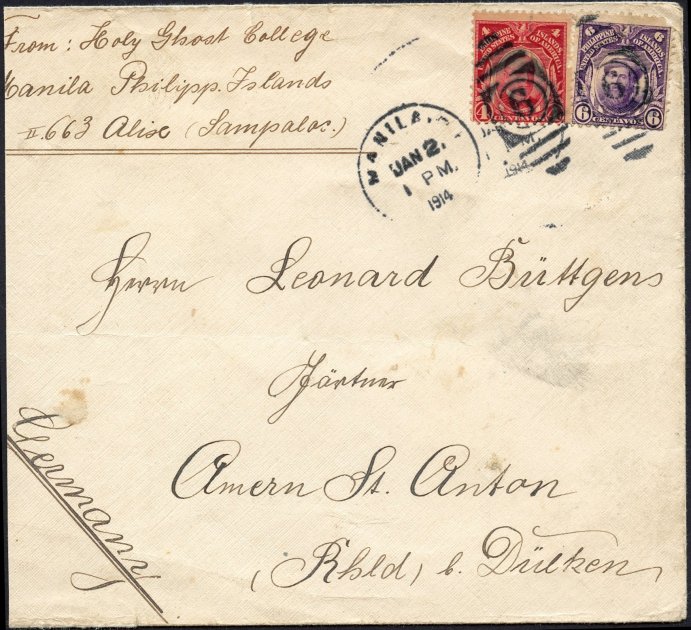 From: Holy Ghost College
Manila Philipp. Islands
II. 663 Alix (Sampaloc.)
4 4
PHILIPPINE ISLANDS
UNITED STATES OF AMERICA
4 CENTAVOS
6 6
PHILIPPINE ISLANDS
UNITED STATES OF AMERICA
6 CENTAVOS 6
MANILA, P.I.
JAN 2,
1 PM.
1914
1914
Herrn Leonard Büttgens
Gärtner
Amern St. Anton
(Rhld) b. Dülken
Germany